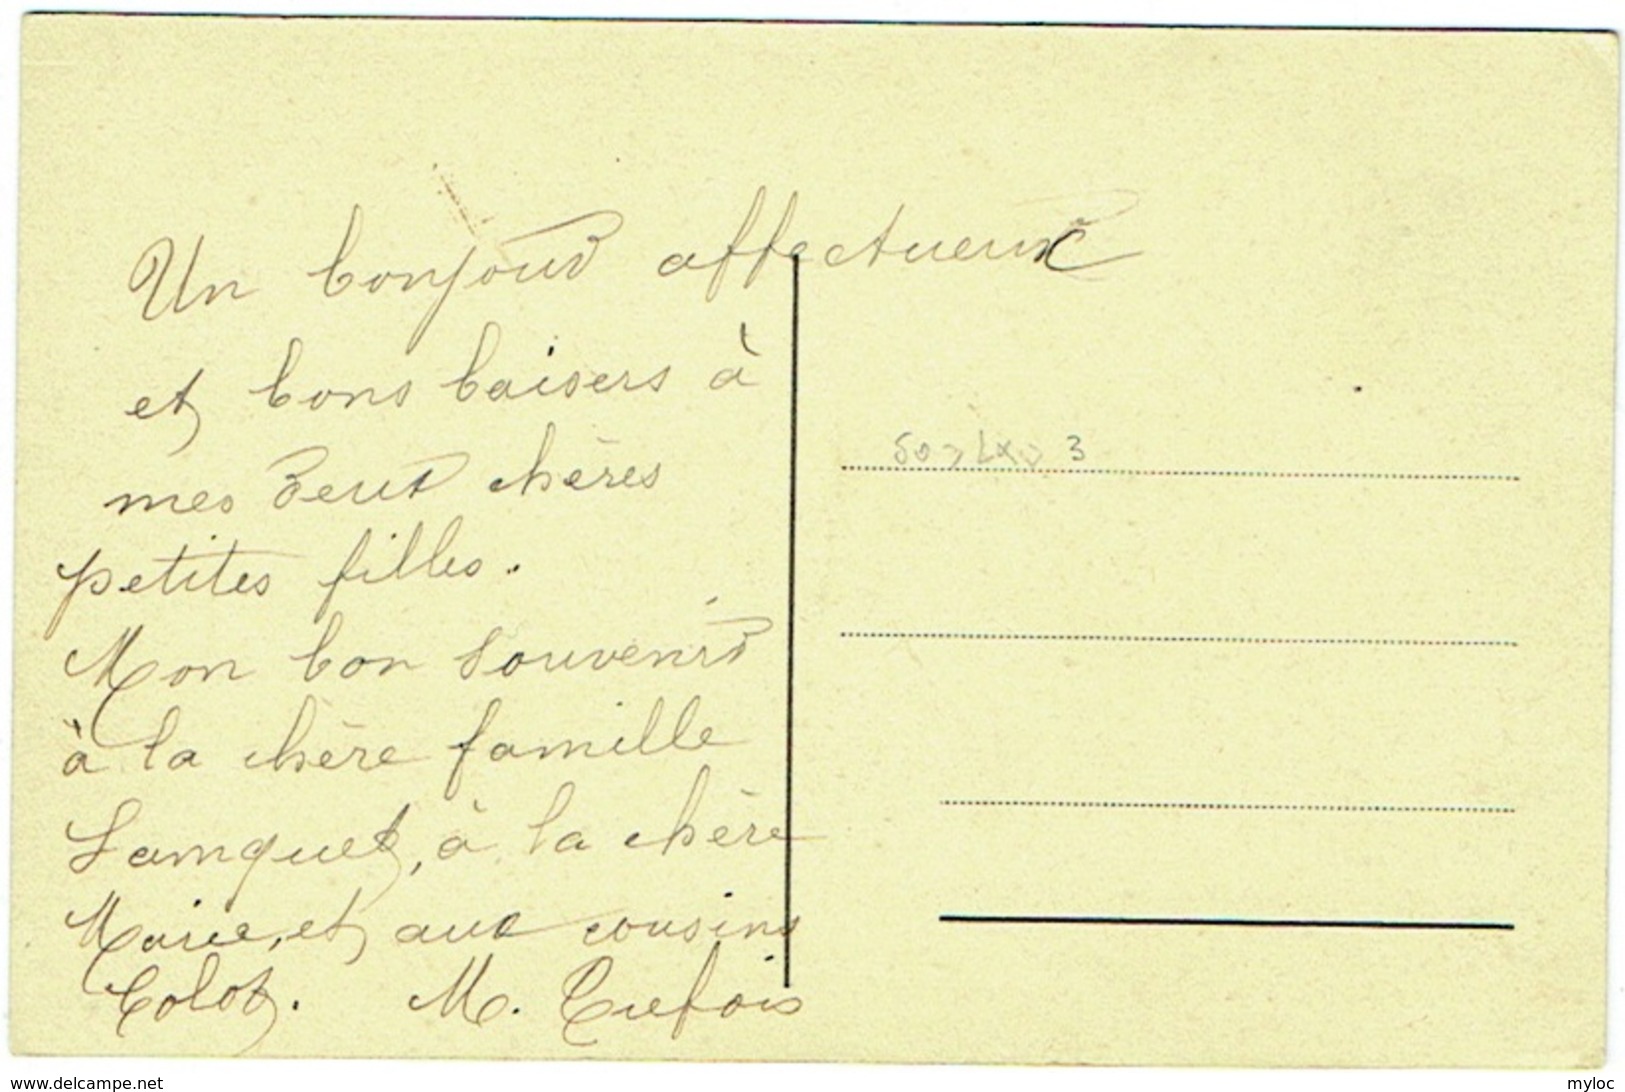 Un bonjour affectueux
et bons baisers à
mes deux chères
petites filles.
Mon bon souvenir
à la chère famille
Lamquet, à la chère
Marie, et aux cousins
Colot. M.
3
www.delcampe.net
myloc